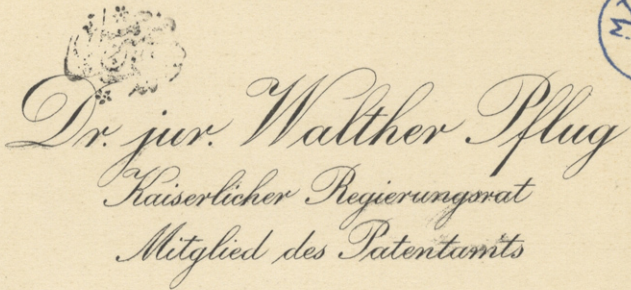 Dr. jur. Walther Pflug
Kaiserlicher Regierungsrat
Mitglied des Patentamts